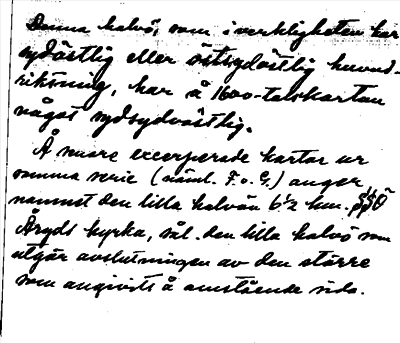 Denna halvö, som i verkligheten har
sydöstlig eller östsydöstlig huvud-
riktning, har å 1600-talskartan
något sydsydvästlig.
Å nuare excerperade kartor ur
samma serie (näml. F. o. G.) anger
namnet den lilla halvön 6½ km. SSÖ
Åryds kyrka, vål. den lilla halvö som
utgör avslutningen av den större
som angivits å omstående sida.